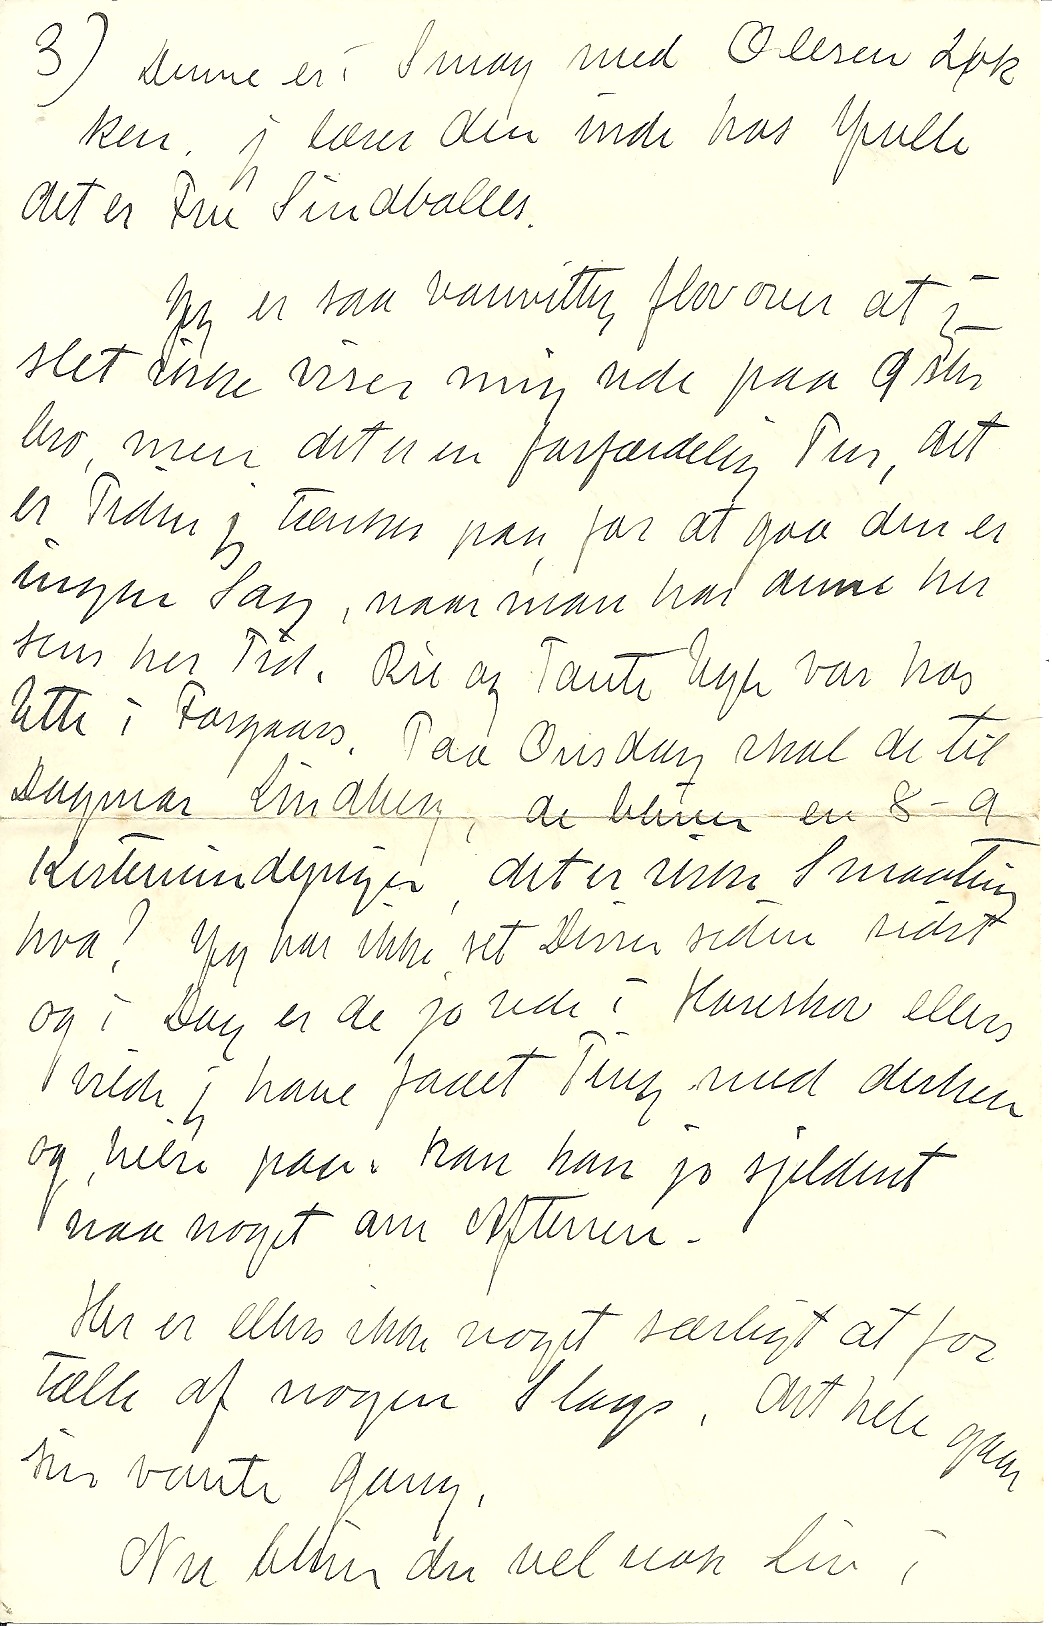 3) Denne er i Smag med Olesen Løk
ken. j læser den inde hos Ypulle
det er Fru Sindballes.
Jeg er saa vanvittig flov over at j
slet ikke viser mig ude paa Øster
bro, men det er en forfærdelig Tur, det
er Tiden j tænker paa, for at gaa den er
ingen Sag, naar man har denne her
sens her Tid. Rie og Tante Ugle var hos
Utte i Forgaars. Paa Onsdag skal de til
Dagmar Lindberg, de bliver en 8-9
Kertemindepiger, det er ikke Smaating
hva? Jeg har ikke set Disser siden sidst
og i Dag er de jo ude i Hareskov ellers
vilde j have faaet Ting med derhen
og hilse paa. kan han jo sjeldent
naa noget om Aftenen -
Her er ellers ikke noget særligt at for
tælle af nogen Slags. Det hele gaar
sin vante Gang.
Nu bliver der vel nok Liv i